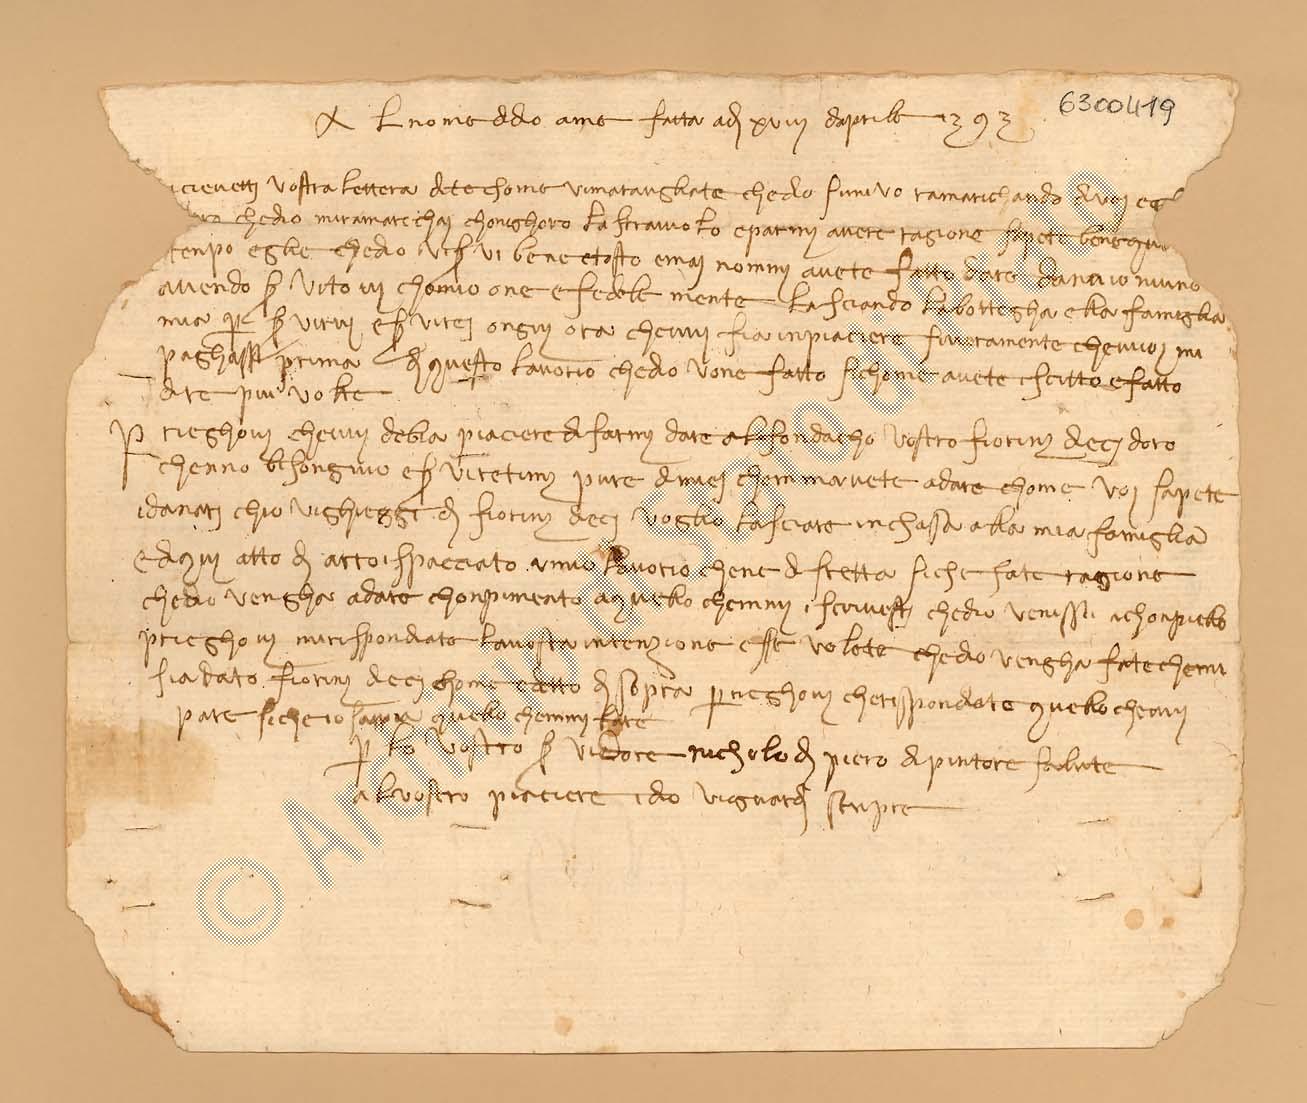 Al nome di dio ame fatta adj xviij daprile 1393
6300419
icievetti vostra lettera dite chome vimaravigliate chedio sun ivo ramarichando di voi e
chedio miramarichai chonighoro la stravolo e parmi avere ragione sapete bene
tenpo eglie chedio vi bene e tosto e mai nonmi avete fatto dare danaio niuno
avendo s vito vi chomio one e fedele mente lasciando la bottegha ella famiglia
mia per s virvi e s virei ongni ora chevvi fia inpiaciere sichuramente chevvoi mi
paghassi prima di questo lavorio chedio vone fatto sichome avete iscritto e fatto
dire piu volte
Prieghovi chevvi debia piaciere di farmi dare al fondacho vostro fiorini dieci doro
chenno bisongnio e s viretimi pure di miei chemmavete adare chome voi sapete
idanari chio vighiegio di fiorini dieci voglio lasciare inchassa alla mia famiglia
e di qui atto di attoispacciato uno lavorio chene di fretta siche fate ragione
chedio vengha adare chonpimento aquello chemmi iscrivesti chedio venissi achonpiello
prieghovi mirispondiate la vostra intenzione esse volete chedio vengha fate chemi
sia dato fiorini dieci chome e detto di sopra prieghovi cherispondiate quello chevvi
pare siche io sapia quello chemmi fare
per lo vostro s vidore nicholo di piero dipintore salute
al vostro piaciere idio viguardi senpre
© Archivio di Stato di Prato